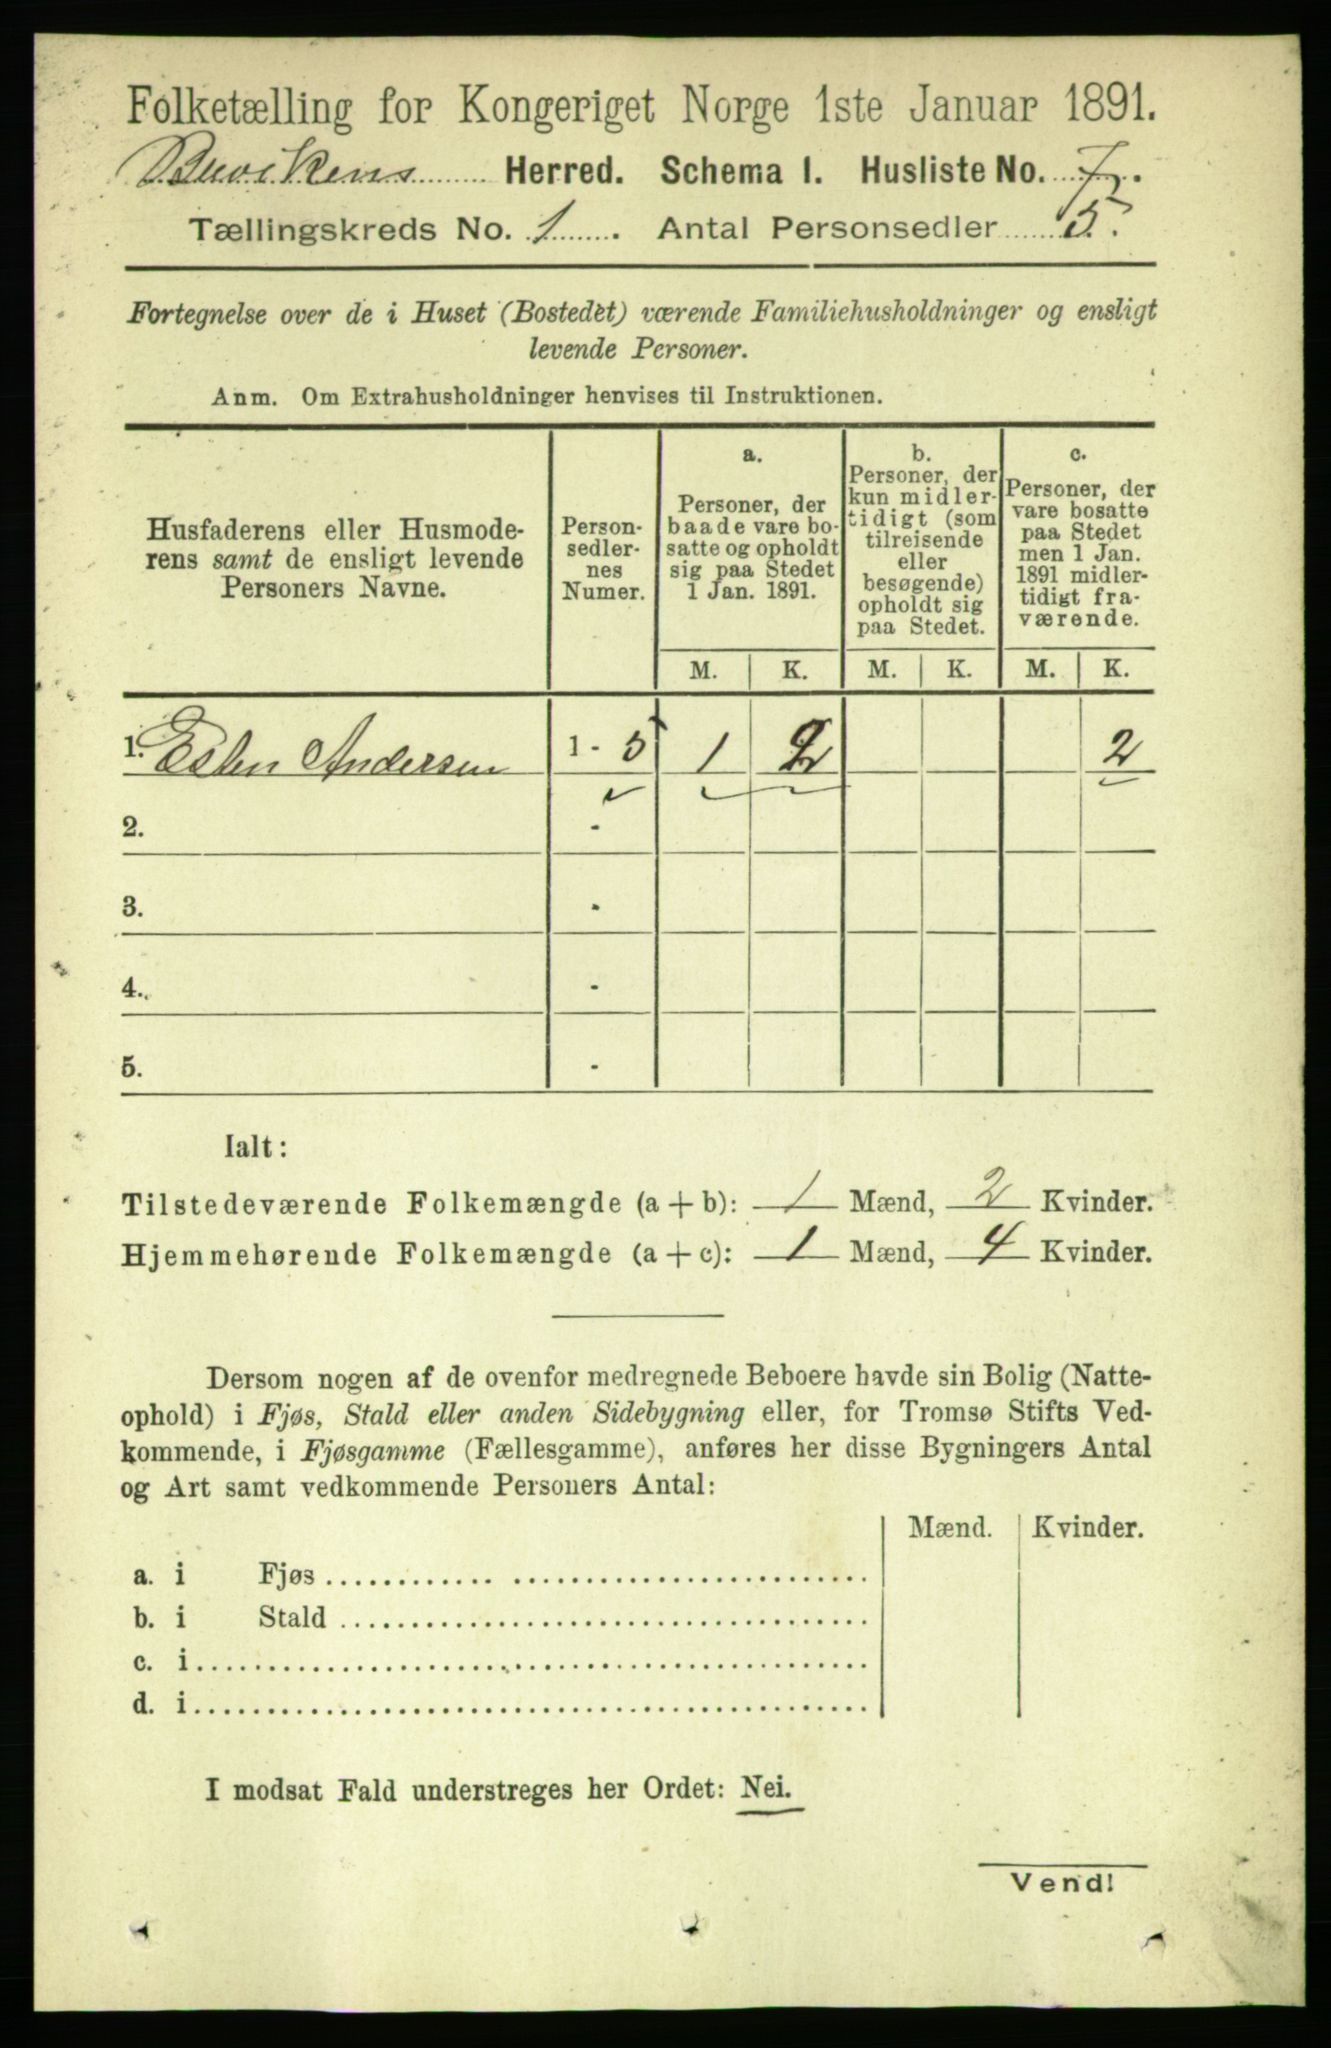 Folketælling for Kongeriget Norge 1ste Januar 1891.
Buvikens Herred. Schema I. Husliste No. 7.
Tællingskreds No. 1. Antal Personsedler 5.
Fortegnelse over de i Huset (Bostedet) værende Familiehusholdninger og ensligt
levende Personer.
Anm. Om Extrahusholdninger henvises til Instruktionen.
Husfaderens eller Husmode-
rens samt de ensligt levende
Personers Navne.
Person-
sedler-
nes
Numer.
a.
Personer, der
baade vare bo-
satte og opholdt
sig paa Stedet
1 Jan. 1891.
b.
Personer, der
kun midler-
tidigt (som
tilreisende
eller
besøgende)
opholdt sig
paa Stedet.
c.
Personer, der
vare bosatte
paa Stedet
men 1 Jan.
1891 midler-
tidigt fra-
værende.
M. K. M. K. M. K.
1. Esten Andersen 1 - 5 1 2 2
2. -
3. -
4. -
5. -
Ialt:
Tilstedeværende Folkemængde (a + b): 1 Mænd, 2 Kvinder.
Hjemmehørende Folkemængde (a + c): 1 Mænd, 4 Kvinder.
Dersom nogen af de ovenfor medregnede Beboere havde sin Bolig (Natte-
ophold) i Fjøs, Stald eller anden Sidebygning eller, for Tromsø Stifts Ved-
kommende, i Fjøsgamme (Fællesgamme), anføres her disse Bygningers Antal
og Art samt vedkommende Personers Antal:
Mænd. Kvinder.
a. i Fjøs
b. i Stald
c. i
d. i
I modsat Fald understreges her Ordet: Nei.
Vend!